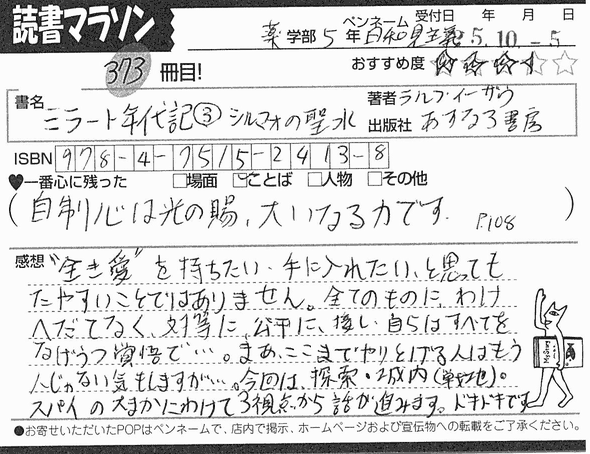 読書マラソン
ペンネーム 受付日 年 月 日
薬学部5年日和見主義 5.10.-5
373冊目! おすすめ度
書名 ミラート年代記③ シルマオの聖水
著者 ラルフ・イーザウ
出版社 あすなろ書房
ISBN 978-4-7515-2413-8
♥一番心に残った □場面 ☑ことば □人物 □その他
(自制心は光の賜、大いなる力です。 P.108)
感想 "全き愛"を持ちたい、手に入れたい、と思ても
たやすいことではありません。全てのものに、わけ
へだてなく、対等に、公平に、接し、自らはすべてを
なげうつ覚悟で…。まあ、ここまでやりとげる人はもう
人じゃない気もしますが…。今回は、探索・城内(戦地)。
スパイの大まかにわけて3視点から話が進みます。ドキドキです
●お寄せいただいたPOPはペンネームで、店内で掲示、ホームページおよび宣伝物への転載をご了承ください。